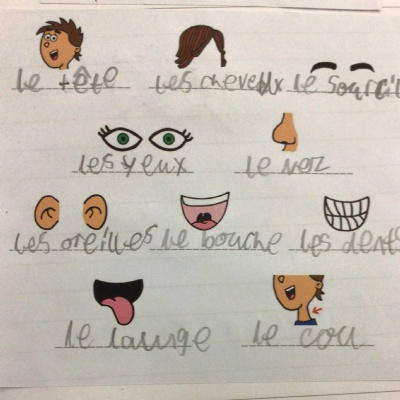 le tête les cheveux le sourcil
les yeux le nez
les oreilles le bouche les dents
le le cou